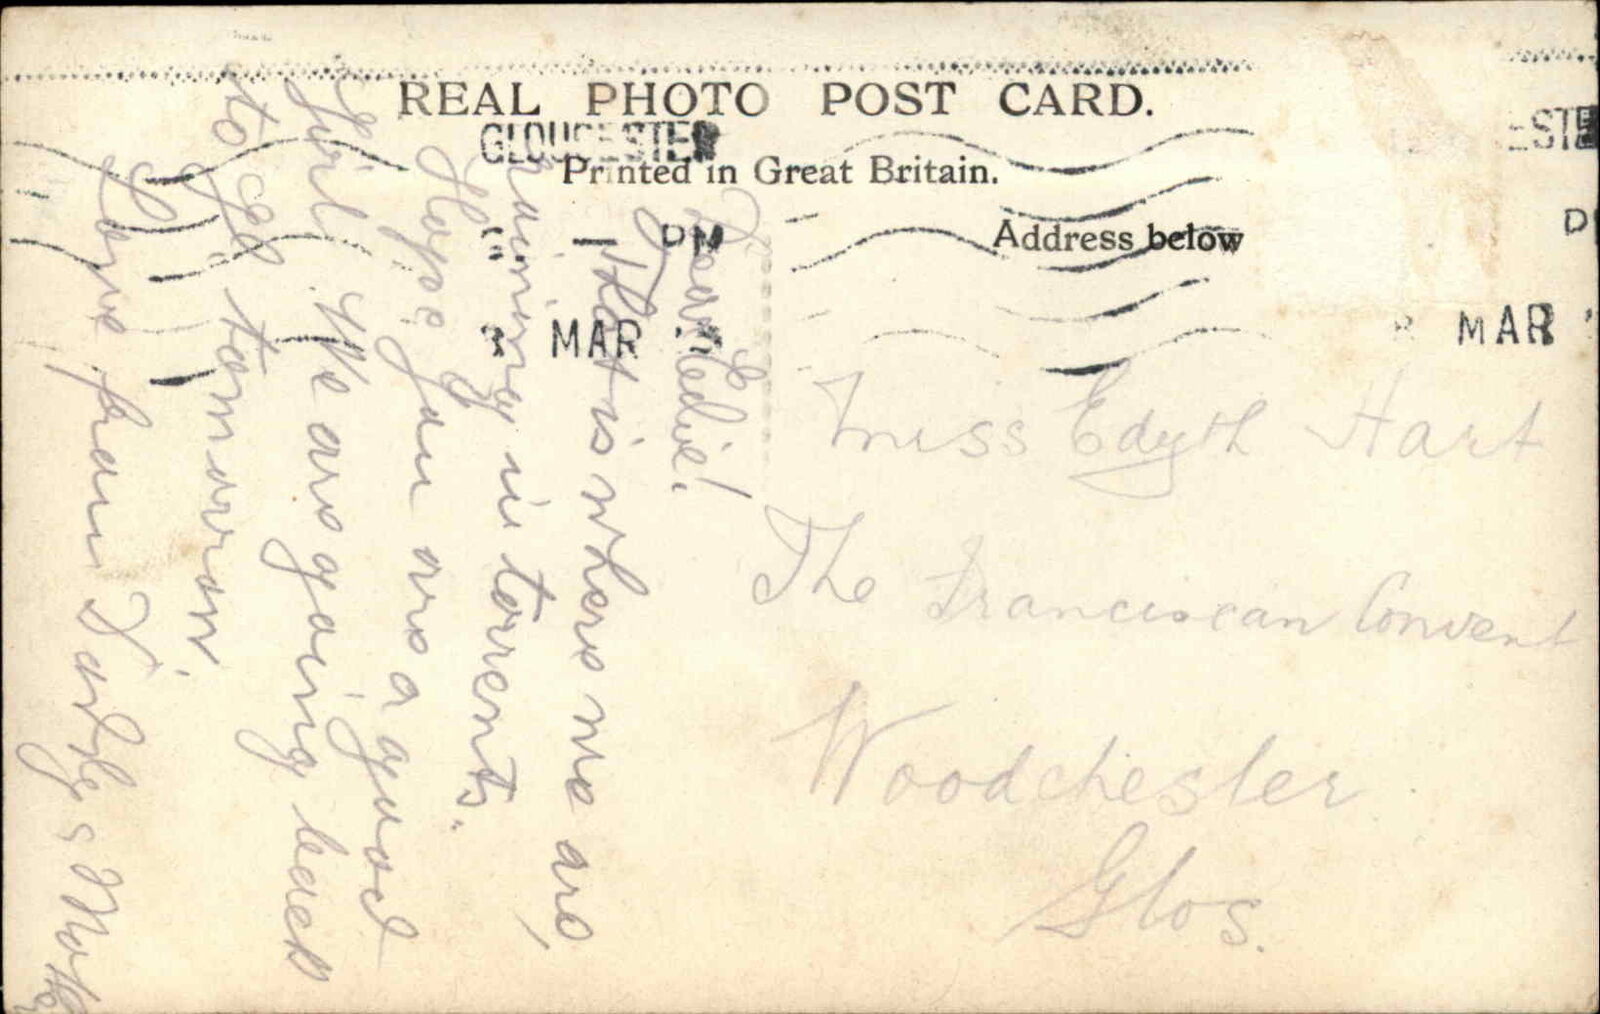 REAL PHOTO POST CARD.
Printed in Great Britain.
Address below
GLOUCESTER
PM
MAR
ESTE
MAR
Dear Edie!
That is where we are,
raining in torrents.
Hope you are a good
Girl. We are going back
to tomorrow.
Love from & Mother
Miss Edyth Hart
The Franciscan Convent
Woodchester
Glos.